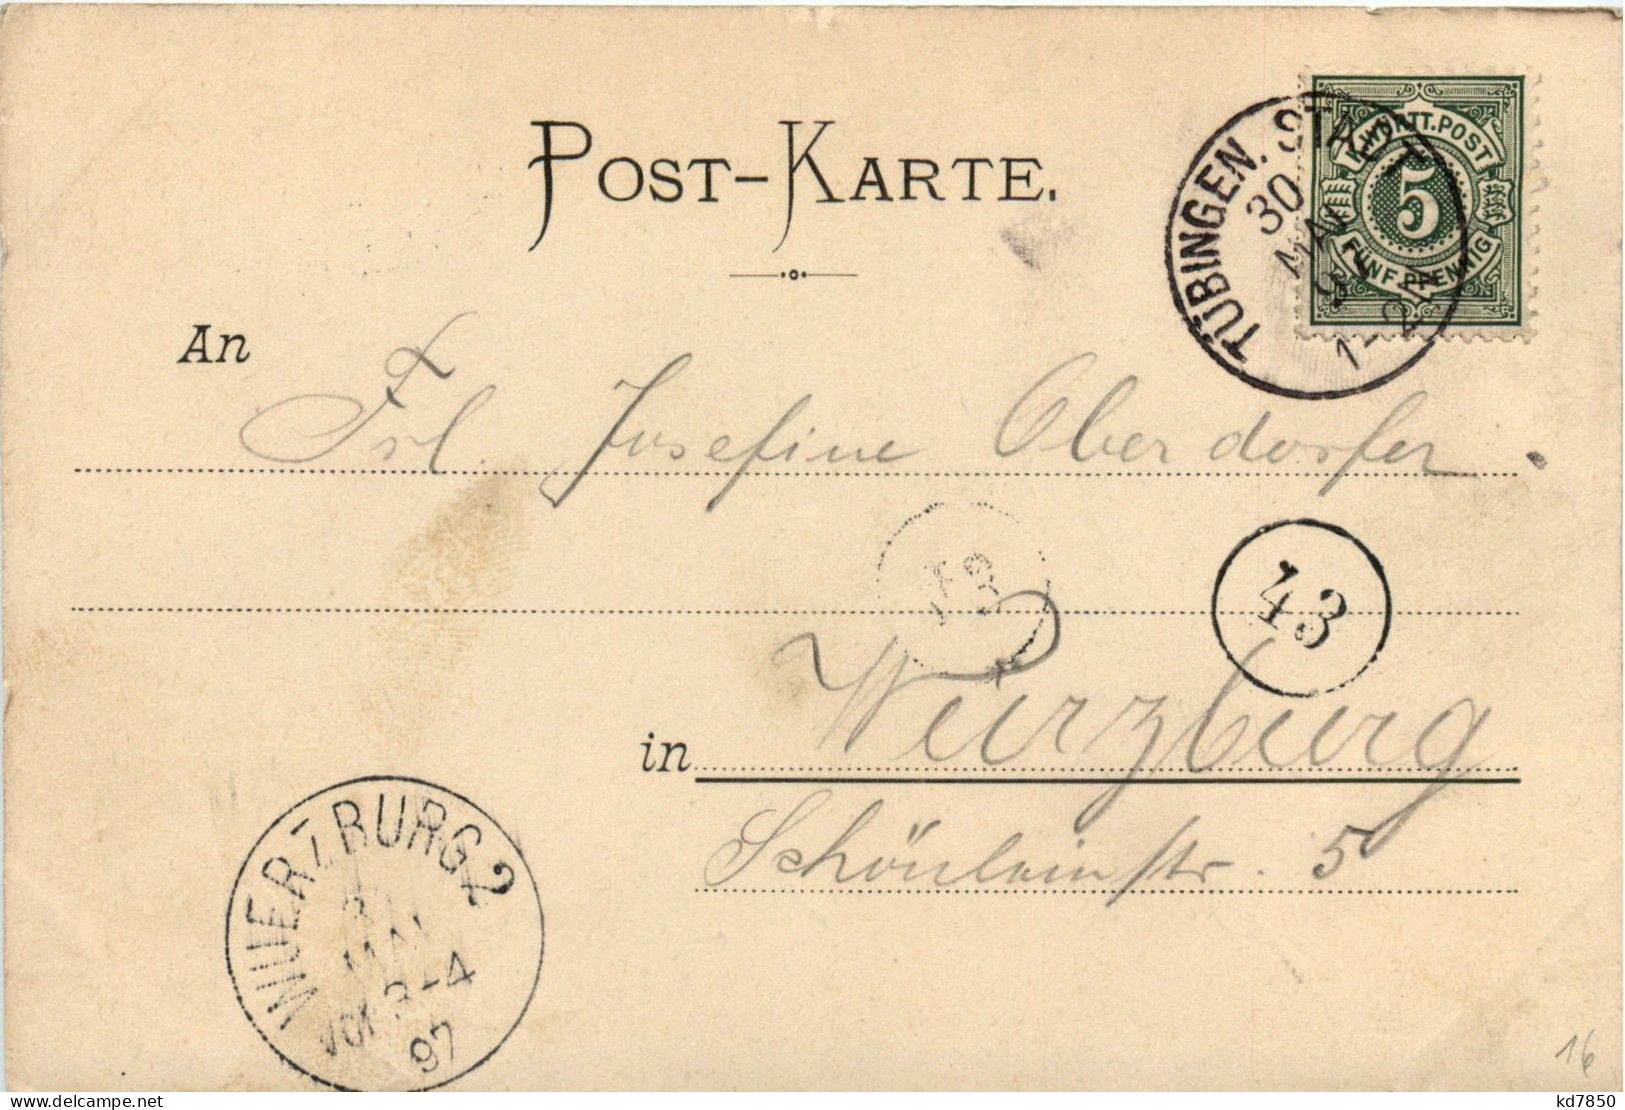 POST-KARTE.
TÜBINGEN. STADT
30
MAI
97
1-2N
K.WÜRTT.POST
5
FÜNF PFENNIG
An
Frl. Josefine Oberdorfer
43
43
in Würzburg
Schönleinstr. 5
WUERZBURG 2
MAI
VOR 3-4
97
16
delcampe.net
kd7850